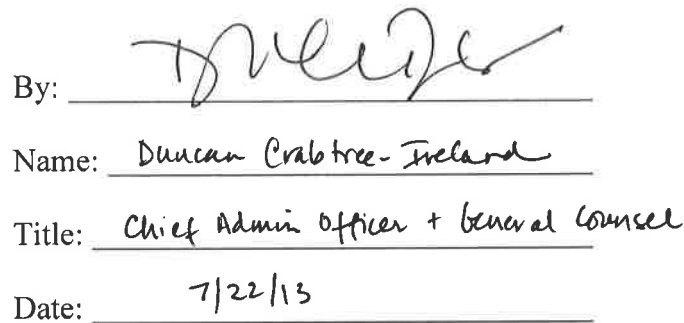 By:
Name: Duncan Crabtree-Ireland
Title: Chief Admin Officer + General Counsel
Date: 7/22/13